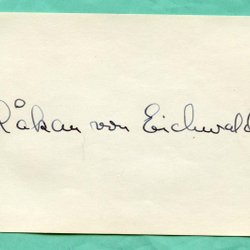 Håkan von Eichwald